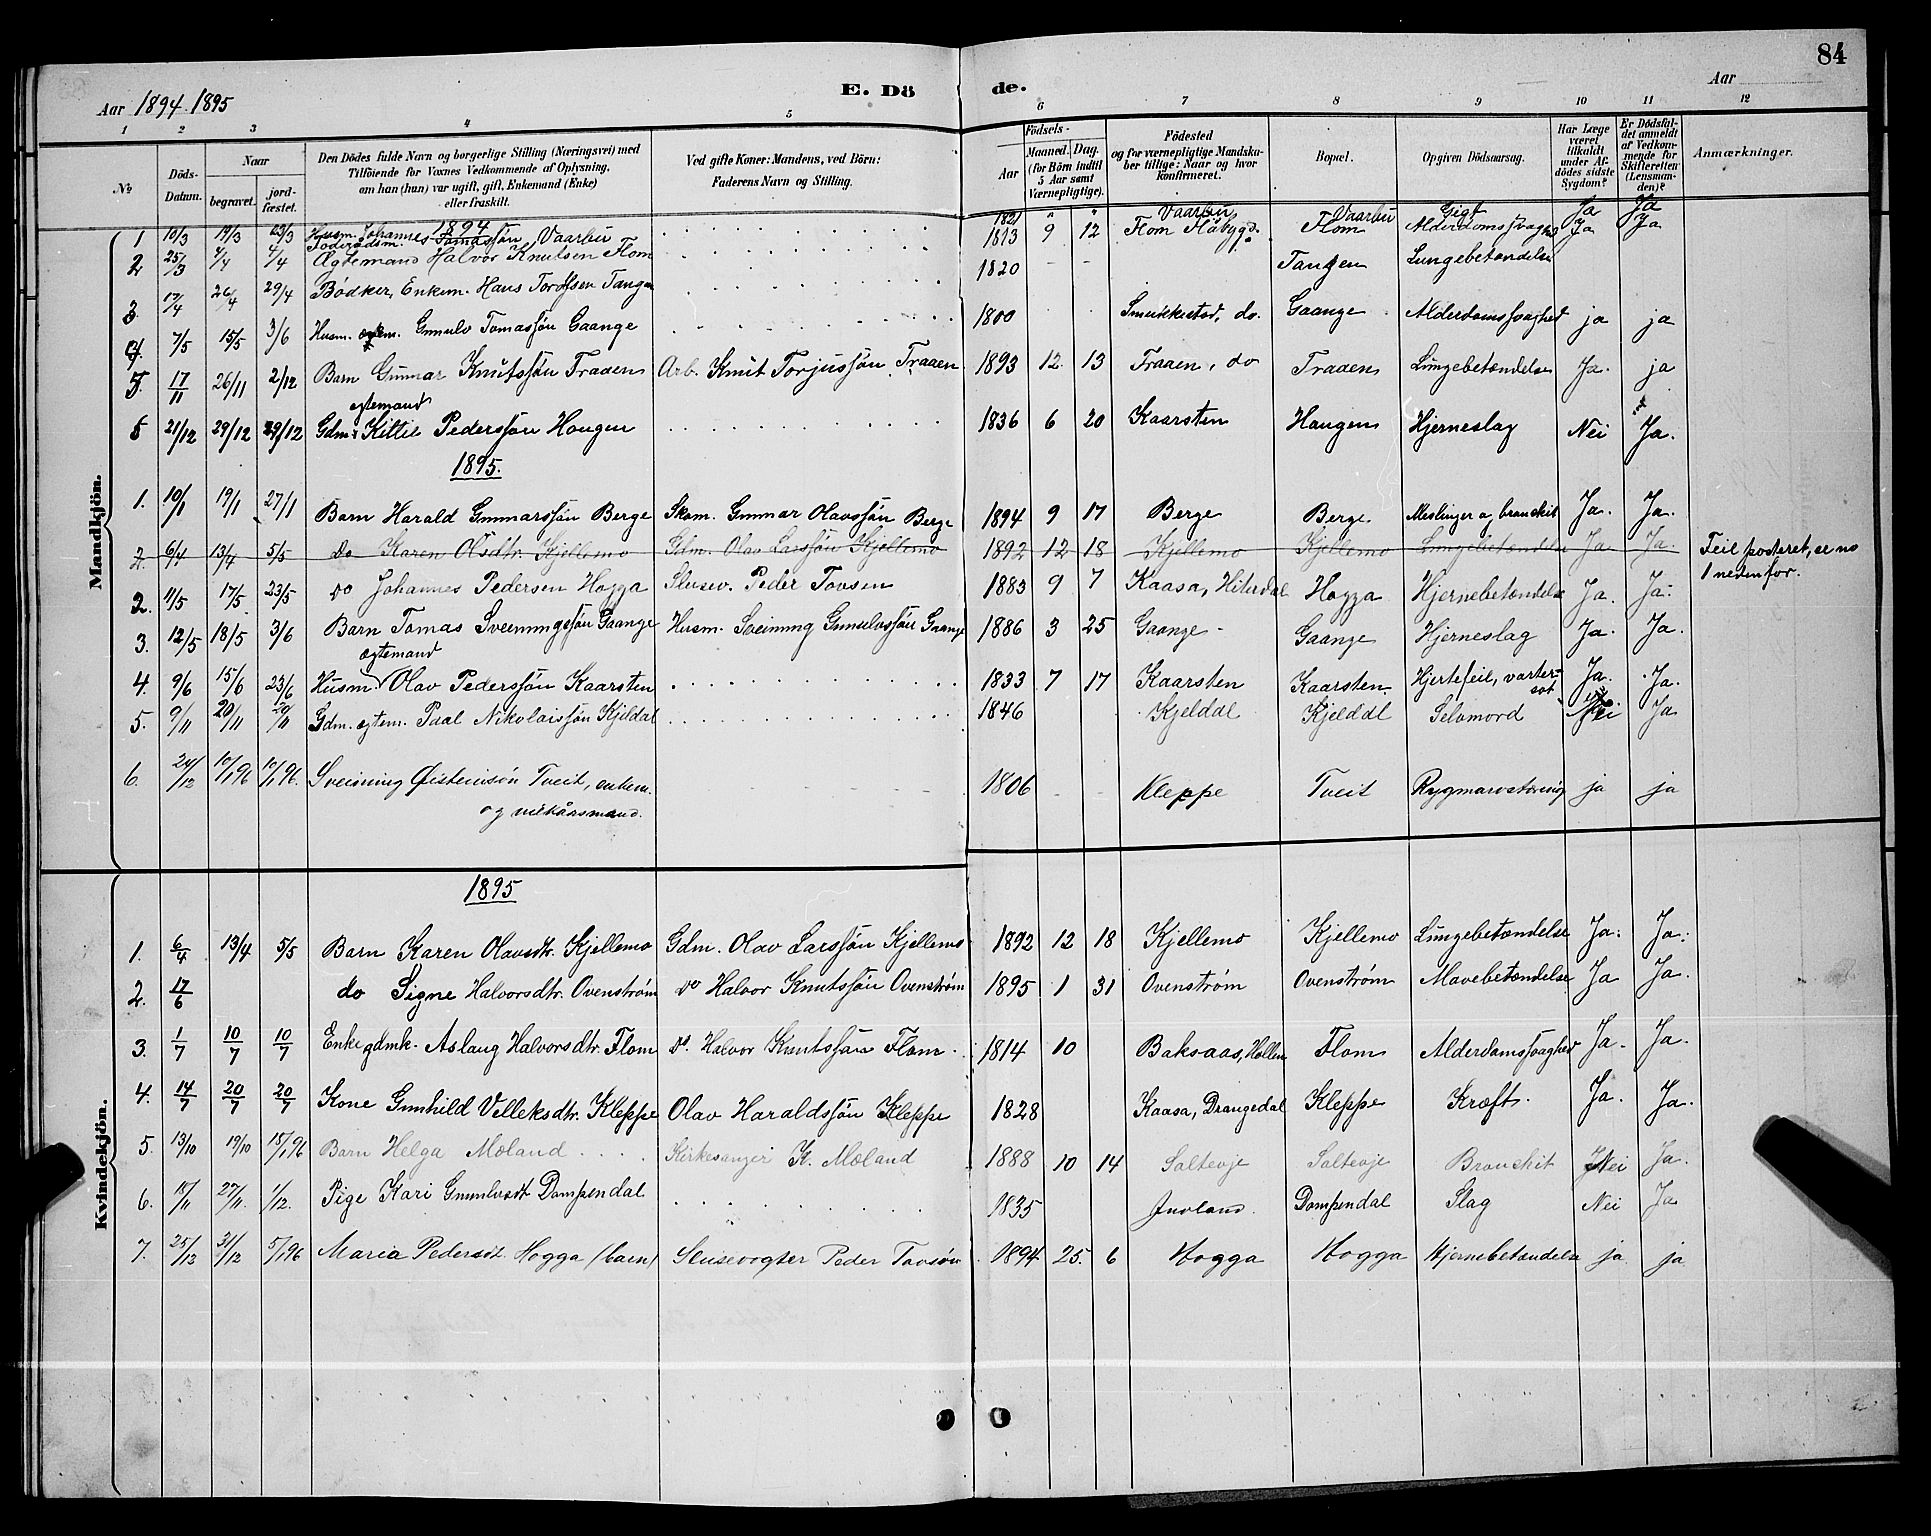 84
Aar 1894. 1895
E. Dö
de.
Aar
1 2 3 4 5 6 7 8 9 10 11 12
No
Döds-Datum.
Naar
begravet.
jord-fæstet.
Den Dödes fulde Navn og borgerlige Stilling (Næringsvei) med
Tilföiende for Voxnes Vedkommende af Oplysning,
om han (hun) var ugift, gift, Enkemand (Enke)
eller fraskilt.
Ved gifte Koner: Mandens, ved Börn:
Faderens Navn og Stilling.
Födsels-
Aar
Maaned. Dag.
(for Börn indtil
5 Aar samt
Værnepligtige).
Födested
og for værnepligtige Mandska-
ber tillige: Naar og hvor
konfirmeret.
Bopæl.
Opgiven Dödsaarsag.
Har Læge
været
tilkaldt
under Af-
dödes sidste
Sygdom?
Er Dödsfal-
det anmeldt
af Vedkom-
mende for
Skifteretten
(Lensman-
den)?
Anmærkninger.
Mandkjön.
1894
1 10/3 19/3 23/3 Husm. Johannes Tomassøn Vaarbu 1821 " " Vaarbu Vaarbu Gigt Ja Ja
2 25/3 4/4 4/4 Føderådsm. Ægtemand Halvor Knutsen Flom 1813 9 12 Flom Flåbygd. Flom Alderdomssvaghed Ja Ja
3 17/4 26/4 29/4 Bødker, Enkem. Hans Tordssen Tangen 1820 - - Tangen Lungebetændelse
4. 7/5 15/5 3/6 Husm. egtem. Gunnulv Tomassøn Gaange 1800 do. Gaange Alderdomssvaghed ja ja
5. 17/11 26/11 2/12 Barn Gunnar Knutssøn Traaen Arb. Knut Torjussøn Traaen 1893 12 13 Traaen, do Traaen Lungebetændelse Ja. ja
egtemand
5 21/12 29/12 29/12 Gdm. Kittil Pederssøn Haugen 1836 6 20 Kaarsten Haugen Hjerneslag Nei Ja.
1895.
1. 10/1 19/1 27/1 Barn Harald Gunnarssøn Berge Skom. Gunnar Olavssøn Berge 1894 9 17 Berge Berge Meslinger og bronchit Ja. Ja.
2. 6/4 13/4 5/5 do Karen Olsdtr. Kjellemo Gdm. Olav Larssøn Kjellemo 1892 12 18 Kjellemo Kjellemo Lungebetændelse Ja Ja. Feil posteret, se no
1 nedenfor.
2. 11/5 17/5 23/5 do Johannes Pedersen Hogga Slusev. Peder Tovsen 1883 9 7 Kaasa, Hiterdal Hogga Hjernebetændelse Ja. Ja.
3. 12/5 18/5 3/6 Barn Tomas Sveinungssøn Gaange Husm. Sveinung Gunnulvssøn Gaange 1886 3 25 Gaange Gaange Hjerneslag Ja. Ja.
egtemand
4. 9/6 15/6 23/6 Husm. Olav Pederssøn Kaarsten 1833 7 17 Kaarsten Kaarsten Hjertefeil, vatter-
sot Ja. Ja.
5. 9/11 20/11 20/11 Gdm. egtem. Paal Nikolaissøn Kjeldal 1846 Kjeldal Kjeldal Selvmord Nei Ja
6. 24/12 10/1 96 10/1 96. Sveinung Øisteinsøn Tveit, enkem.
og vilkårsmand. 1806 - - Kleppe Tveit Rygmarvstæring ja ja
Kvindekjön.
1895
1. 6/4 13/4 5/5 Barn Karen Olavsdtr. Kjellemo Gdm. Olav Larssøn Kjellemo 1892 12 18 Kjellemo Kjellemo Lungebetændelse Ja. Ja.
2. 17/6 do Signe Halvorsdtr. Ovenstrøm do Halvor Knutssøn Ovenstrøm 1895 1 31 Ovenstrøm Ovenstrøm Mavebetændelse Ja Ja.
3. 1/7 10/7 10/7 Enke gdmk. Aslaug Halvorsdtr. Flom do. Halvor Knutssøn Flom. 1814 10 Baksaas, Hollen Flom Alderdomssvaghed Ja. Ja.
4. 14/7 20/7 20/7 Kone Gunhild Velleksdtr. Kleppe Olav Haraldssøn Kleppe 1828 Kaasa, Drangedal Kleppe Kræft. Ja. Ja.
5. 13/10 19/10 15/1 96 Barn Helga Mæland Kirkesanger K. Mæland 1888 10 14 Saltevje Saltevje Bronchit Nei Ja.
6. 15/11 27/11. 1/12. Pige Kari Gunnlvsdt Dompendal 1835 Juvland Dompendal Slag Nei Ja
7. 25/12 31/12 5/1 96 Maria Pedersdt. Hogga (barn) Slusevogter Peder Tovsøn 1894 25. 6 Hogga Hogga Hjernebetændelse ja ja